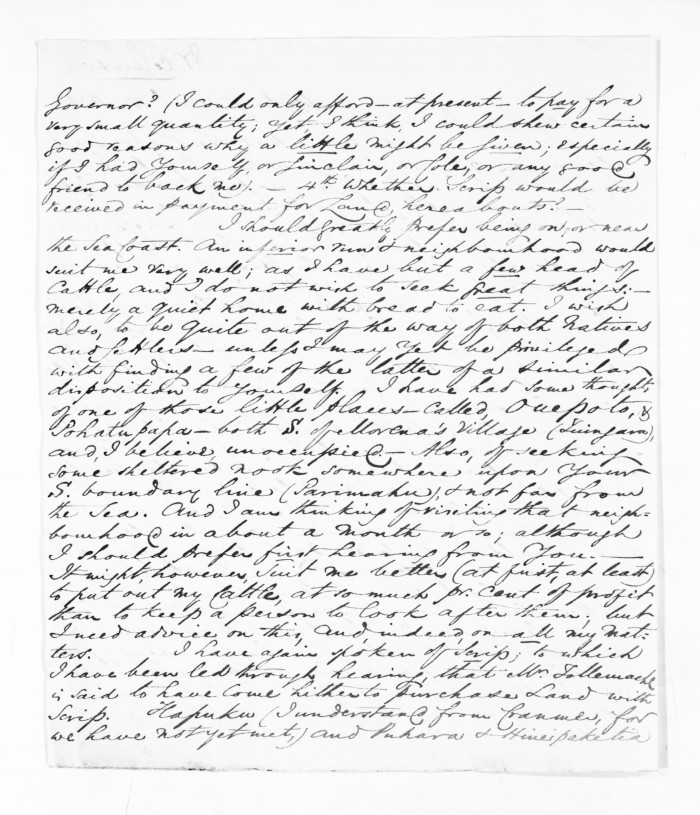 Governor? (I could only afford – at present – to pay for a
very small quantity; yet, I think, I could shew certain
good reasons why a little might be given; especially
if I had Yourself, or Sinclair, or Cole, or any good
friend to back me). – 4th. Whether Scrip would be
received in payment for Land, hereabouts? –
I should greatly prefer being on, or near
the Sea Coast. An inferior run & neighbourhood would
suit me very well; as I have but a few head of
Cattle, and I do not wish to seek great things: –
merely a quiet home with bread to eat. I wish
also, to be quite out of the way of both Natives
and Settlers – unless I may yet be privileged
with finding a few of the latter of a similar
disposition to Yourself. I have had some thoughts
of one of those little places – called, Ouepoto, &
Pohatupapa – both S. of Morena's Village (Tuingara),
and, I believe, unoccupied – Also, of seeking
some sheltered nook somewhere upon Your
S. boundary line (Parimahu), & not far from
the Sea. And I am thinking of visiting that neigh-
bourhood in about a month or so; although
I should prefer first hearing from You. –
It might, however, suit me better (at first, at least)
to put out my Cattle, at so much pr. cent. of profit
than to keep a person to look after them; but
I need advice on this, and, indeed, on all my mat-
ters. I have again spoken of Scrip; to which
I have been led through hearing, that Mr. Tollemache
is said to have come hither to Purchase Land with
Scrip. Hapuku (I understand from Cranmer, for
we have not yet met,) and Puhara & Hineipaketia